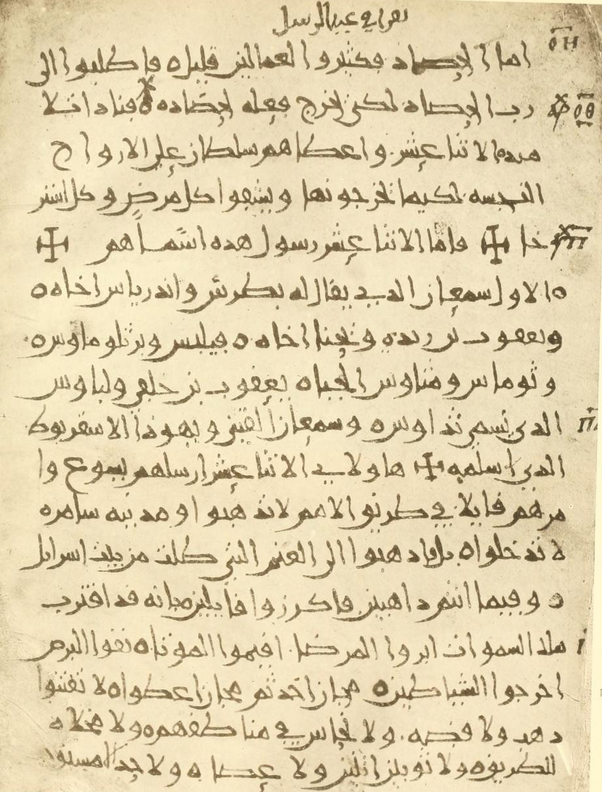 تقرا في عيد الرسل
اما الحصاد فكثير والعمالين قليل ه فاطلبوا الى
رب الحصاد لكي يخرج فعله لحصاده ه فنادا تلا
ميده الاثنا عشر واعطاهم سلطان على الارواح
النجسه لكيما يخرجونها ويشفوا كل مرض وكل استر
خا ✠ فاما الاثنا عشر رسول هذه اسماهم ✠
ه الاول سمعان الذي يقال له بطرس واندرياس اخاه ه
ويعقوب بن زبدي ويحنا اخاه ه فيلبس وبرثلوماوس ه
وثوماس ومتاوس الجباه يعقوب بن حلفى ولباوس
الذي تسمى تداوس ه وسمعان القنني ويهوذا الاسخريوط
الذي اسلمه ✠ هاولاي الاثنا عشر ارسلهم يسوع وا
مرهم قايلا في طريق الامم لا تذهبوا او مدينه سامره
لا تدخلوا ه بل اذهبوا الى الغنم التي ضلت من بيت اسرايل
ه وفيما انتم ذاهبين فاكرزوا قايلين بانه قد اقترب
ملك السموات ابروا المرضا اقيموا الموتا ه نقوا البرص
اخرجوا الشياطين ه مجان اخذتم مجان اعطوا ه لا تقتنوا
ذهب ولا فضه ولا نحاس في مناطقكم ه ولا مخلاه
للطريق ه ولا ثوبين اثنين ولا عصا ه ولا حذا